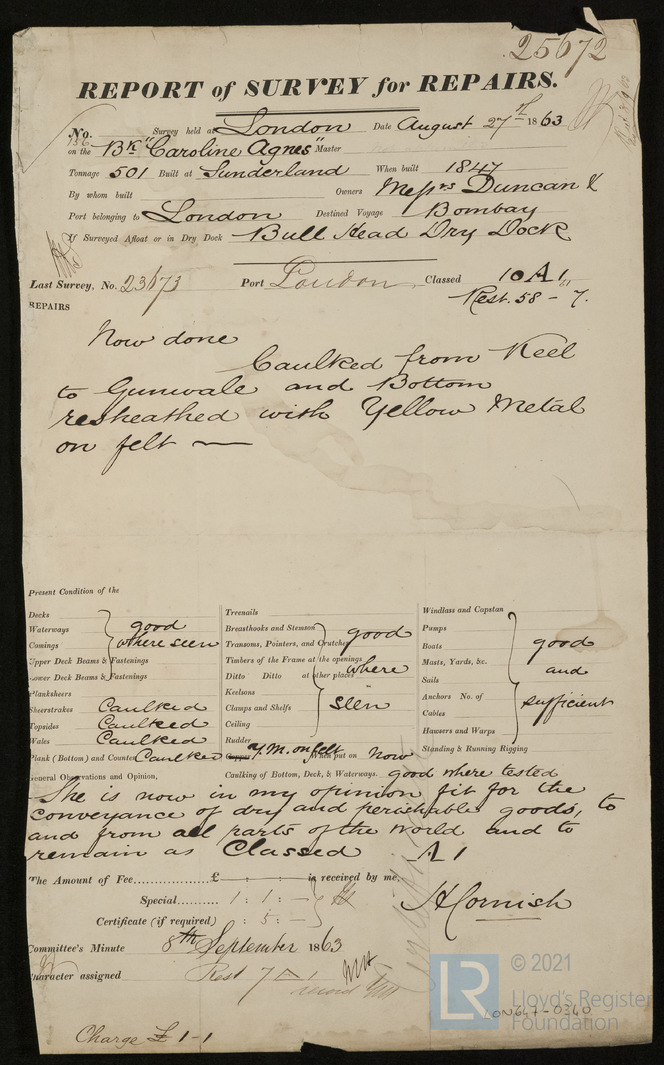 25672
REPORT of SURVEY for REPAIRS.
No. 136 Survey held at London Date August 27th 1863
on the Bk "Caroline Agnes" Master
Tonnage 501 Built at Sunderland When built 1847
By whom built Owners Messrs Duncan &
Port belonging to London Destined Voyage Bombay
If Surveyed Afloat or in Dry Dock Bull Head Dry Dock
Last Survey, No. 23673 Port London Classed 10 A 1 61
Rest. 58 - 7.
REPAIRS
Now done
Caulked from Keel
to Gunwale and Bottom
resheathed with Yellow Metal
on felt —
Present Condition of the
Decks
Waterways
Comings
Upper Deck Beams & Fastenings
Lower Deck Beams & Fastenings
good
where seen
Planksheers
Sheerstrakes Caulked
Topsides Caulked
Wales Caulked
Plank (Bottom) and Counter Caulked
Treenails
Breasthooks and Stemson
Transoms, Pointers, and Crutches
Timbers of the Frame at the openings
Ditto Ditto at other places
Keelsons
Clamps and Shelfs
Ceiling
Rudder
good
where
seen
Copper Y.M. on felt When put on Now
Windlass and Capstan
Pumps
Boats
Masts, Yards, &c.
Sails
Anchors No. of
Cables
Hawsers and Warps
Standing & Running Rigging
good
and
sufficient
General Observations and Opinion, Caulking of Bottom, Deck, & Waterways. good where tested
She is now in my opinion fit for the
conveyance of dry and perishable goods, to
and from all parts of the World and to
remain as Classed A 1
The Amount of Fee £ : : is received by me,
Special 1 : 1 : —
Certificate (if required) : 5 : —
H Cornish
Committee's Minute 8th September 1863
Character assigned Rest 7 A 1
Charge £ 1-1
LR
© 2021
Lloyd's Register
Foundation
LON647-0340